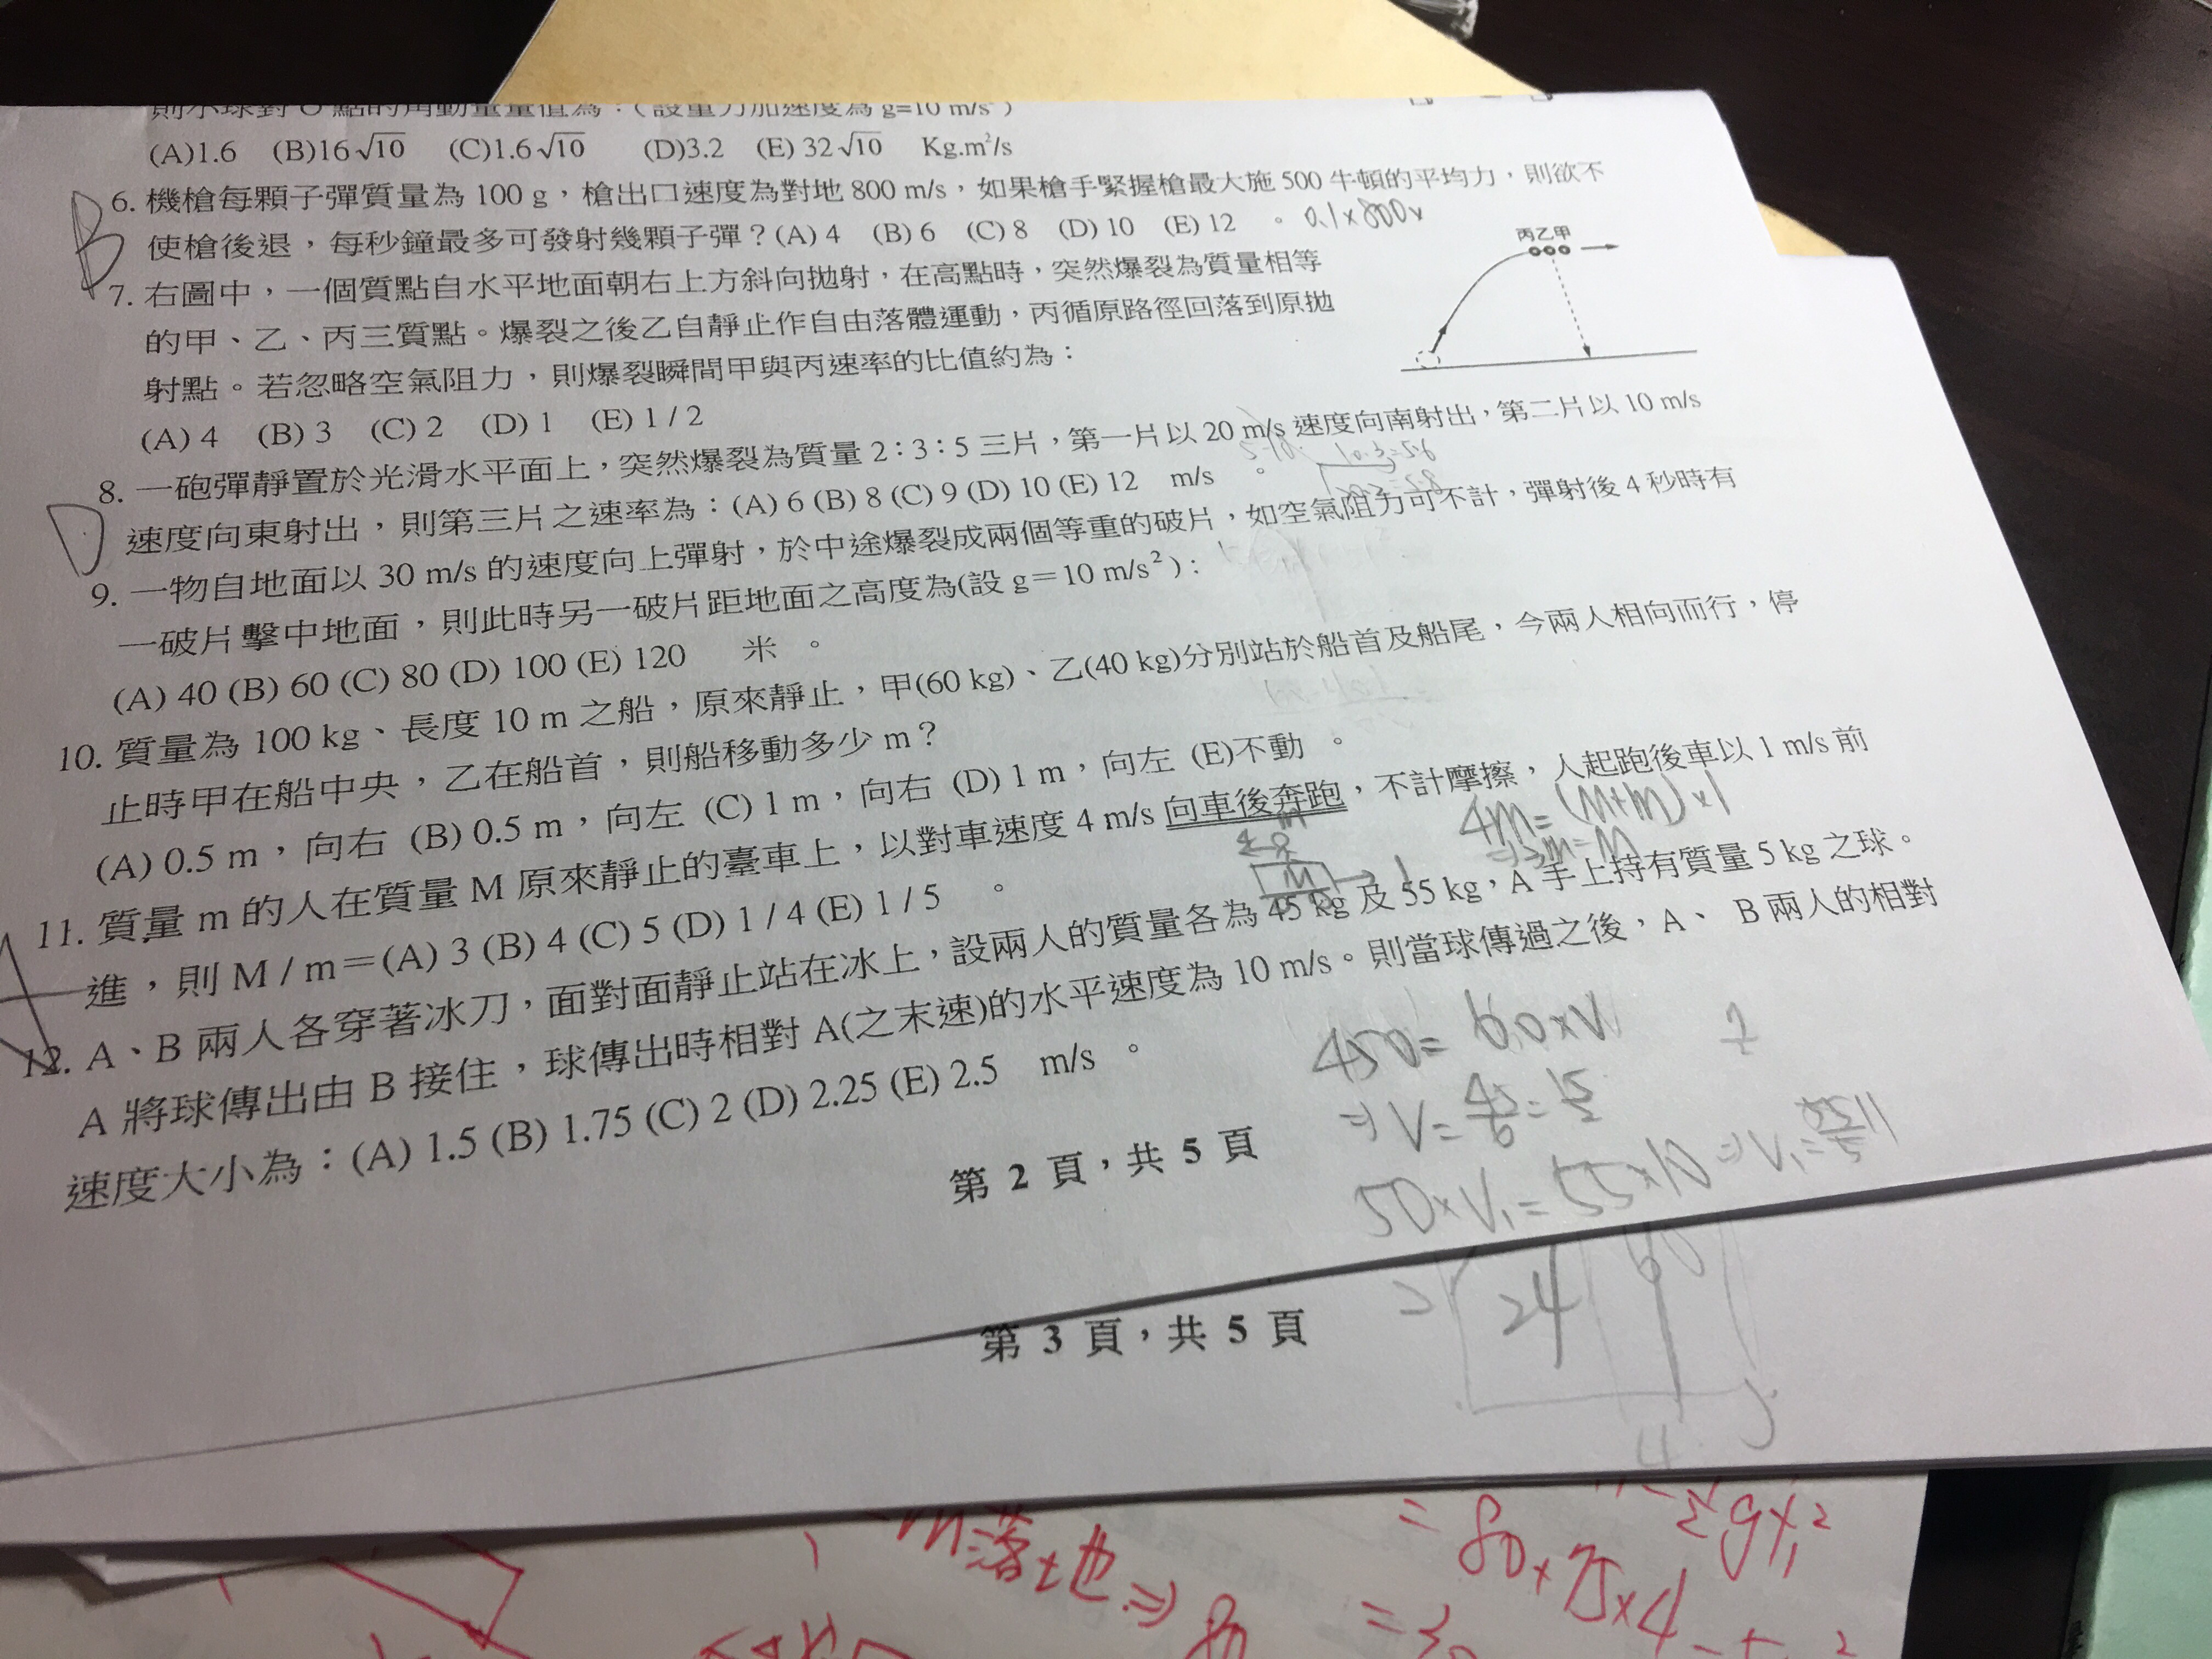 則小球對O點的角動量量值為：(設重力加速度為 g=10 m/s²)
(A)1.6 (B)16√10 (C)1.6√10 (D)3.2 (E) 32√10 Kg.m²/s
B
6. 機槍每顆子彈質量為 100 g，槍出口速度為對地 800 m/s，如果槍手緊握槍最大施 500 牛頓的平均力，則欲不
使槍後退，每秒鐘最多可發射幾顆子彈？(A) 4 (B) 6 (C) 8 (D) 10 (E) 12 。 0.1×800×
丙乙甲
7. 右圖中，一個質點自水平地面朝右上方斜向拋射，在高點時，突然爆裂為質量相等
的甲、乙、丙三質點。爆裂之後乙自靜止作自由落體運動，丙循原路徑回落到原拋
射點。若忽略空氣阻力，則爆裂瞬間甲與丙速率的比值約為：
(A) 4 (B) 3 (C) 2 (D) 1 (E) 1 / 2
D
8. 一砲彈靜置於光滑水平面上，突然爆裂為質量 2：3：5 三片，第一片以 20 m/s 速度向南射出，第二片以 10 m/s
速度向東射出，則第三片之速率為：(A) 6 (B) 8 (C) 9 (D) 10 (E) 12 m/s 。
9. 一物自地面以 30 m/s 的速度向上彈射，於中途爆裂成兩個等重的破片，如空氣阻力可不計，彈射後 4 秒時有
一破片擊中地面，則此時另一破片距地面之高度為(設 g＝10 m/s²)：
(A) 40 (B) 60 (C) 80 (D) 100 (E) 120 米 。
10. 質量為 100 kg、長度 10 m 之船，原來靜止，甲(60 kg)、乙(40 kg)分別站於船首及船尾，今兩人相向而行，停
止時甲在船中央，乙在船首，則船移動多少 m？
(A) 0.5 m，向右 (B) 0.5 m，向左 (C) 1 m，向右 (D) 1 m，向左 (E)不動 。
A
11. 質量 m 的人在質量 M 原來靜止的臺車上，以對車速度 4 m/s 向車後奔跑，不計摩擦，人起跑後車以 1 m/s 前
進，則 M / m＝(A) 3 (B) 4 (C) 5 (D) 1 / 4 (E) 1 / 5 。
4m=(M+m)×1
⇒3m=M
m
4
M
1
12. A、B 兩人各穿著冰刀，面對面靜止站在冰上，設兩人的質量各為 45 kg 及 55 kg，A 手上持有質量 5 kg 之球。
A 將球傳出由 B 接住，球傳出時相對 A(之末速)的水平速度為 10 m/s。則當球傳過之後，A、 B 兩人的相對
速度大小為：(A) 1.5 (B) 1.75 (C) 2 (D) 2.25 (E) 2.5 m/s 。
450=60×V
⇒V=45/6=15/2
50×V₁=55×10⇒V₁=
第 2 頁，共 5 頁
24
60
4
第 3 頁，共 5 頁
m落地⇒
=80×75×4